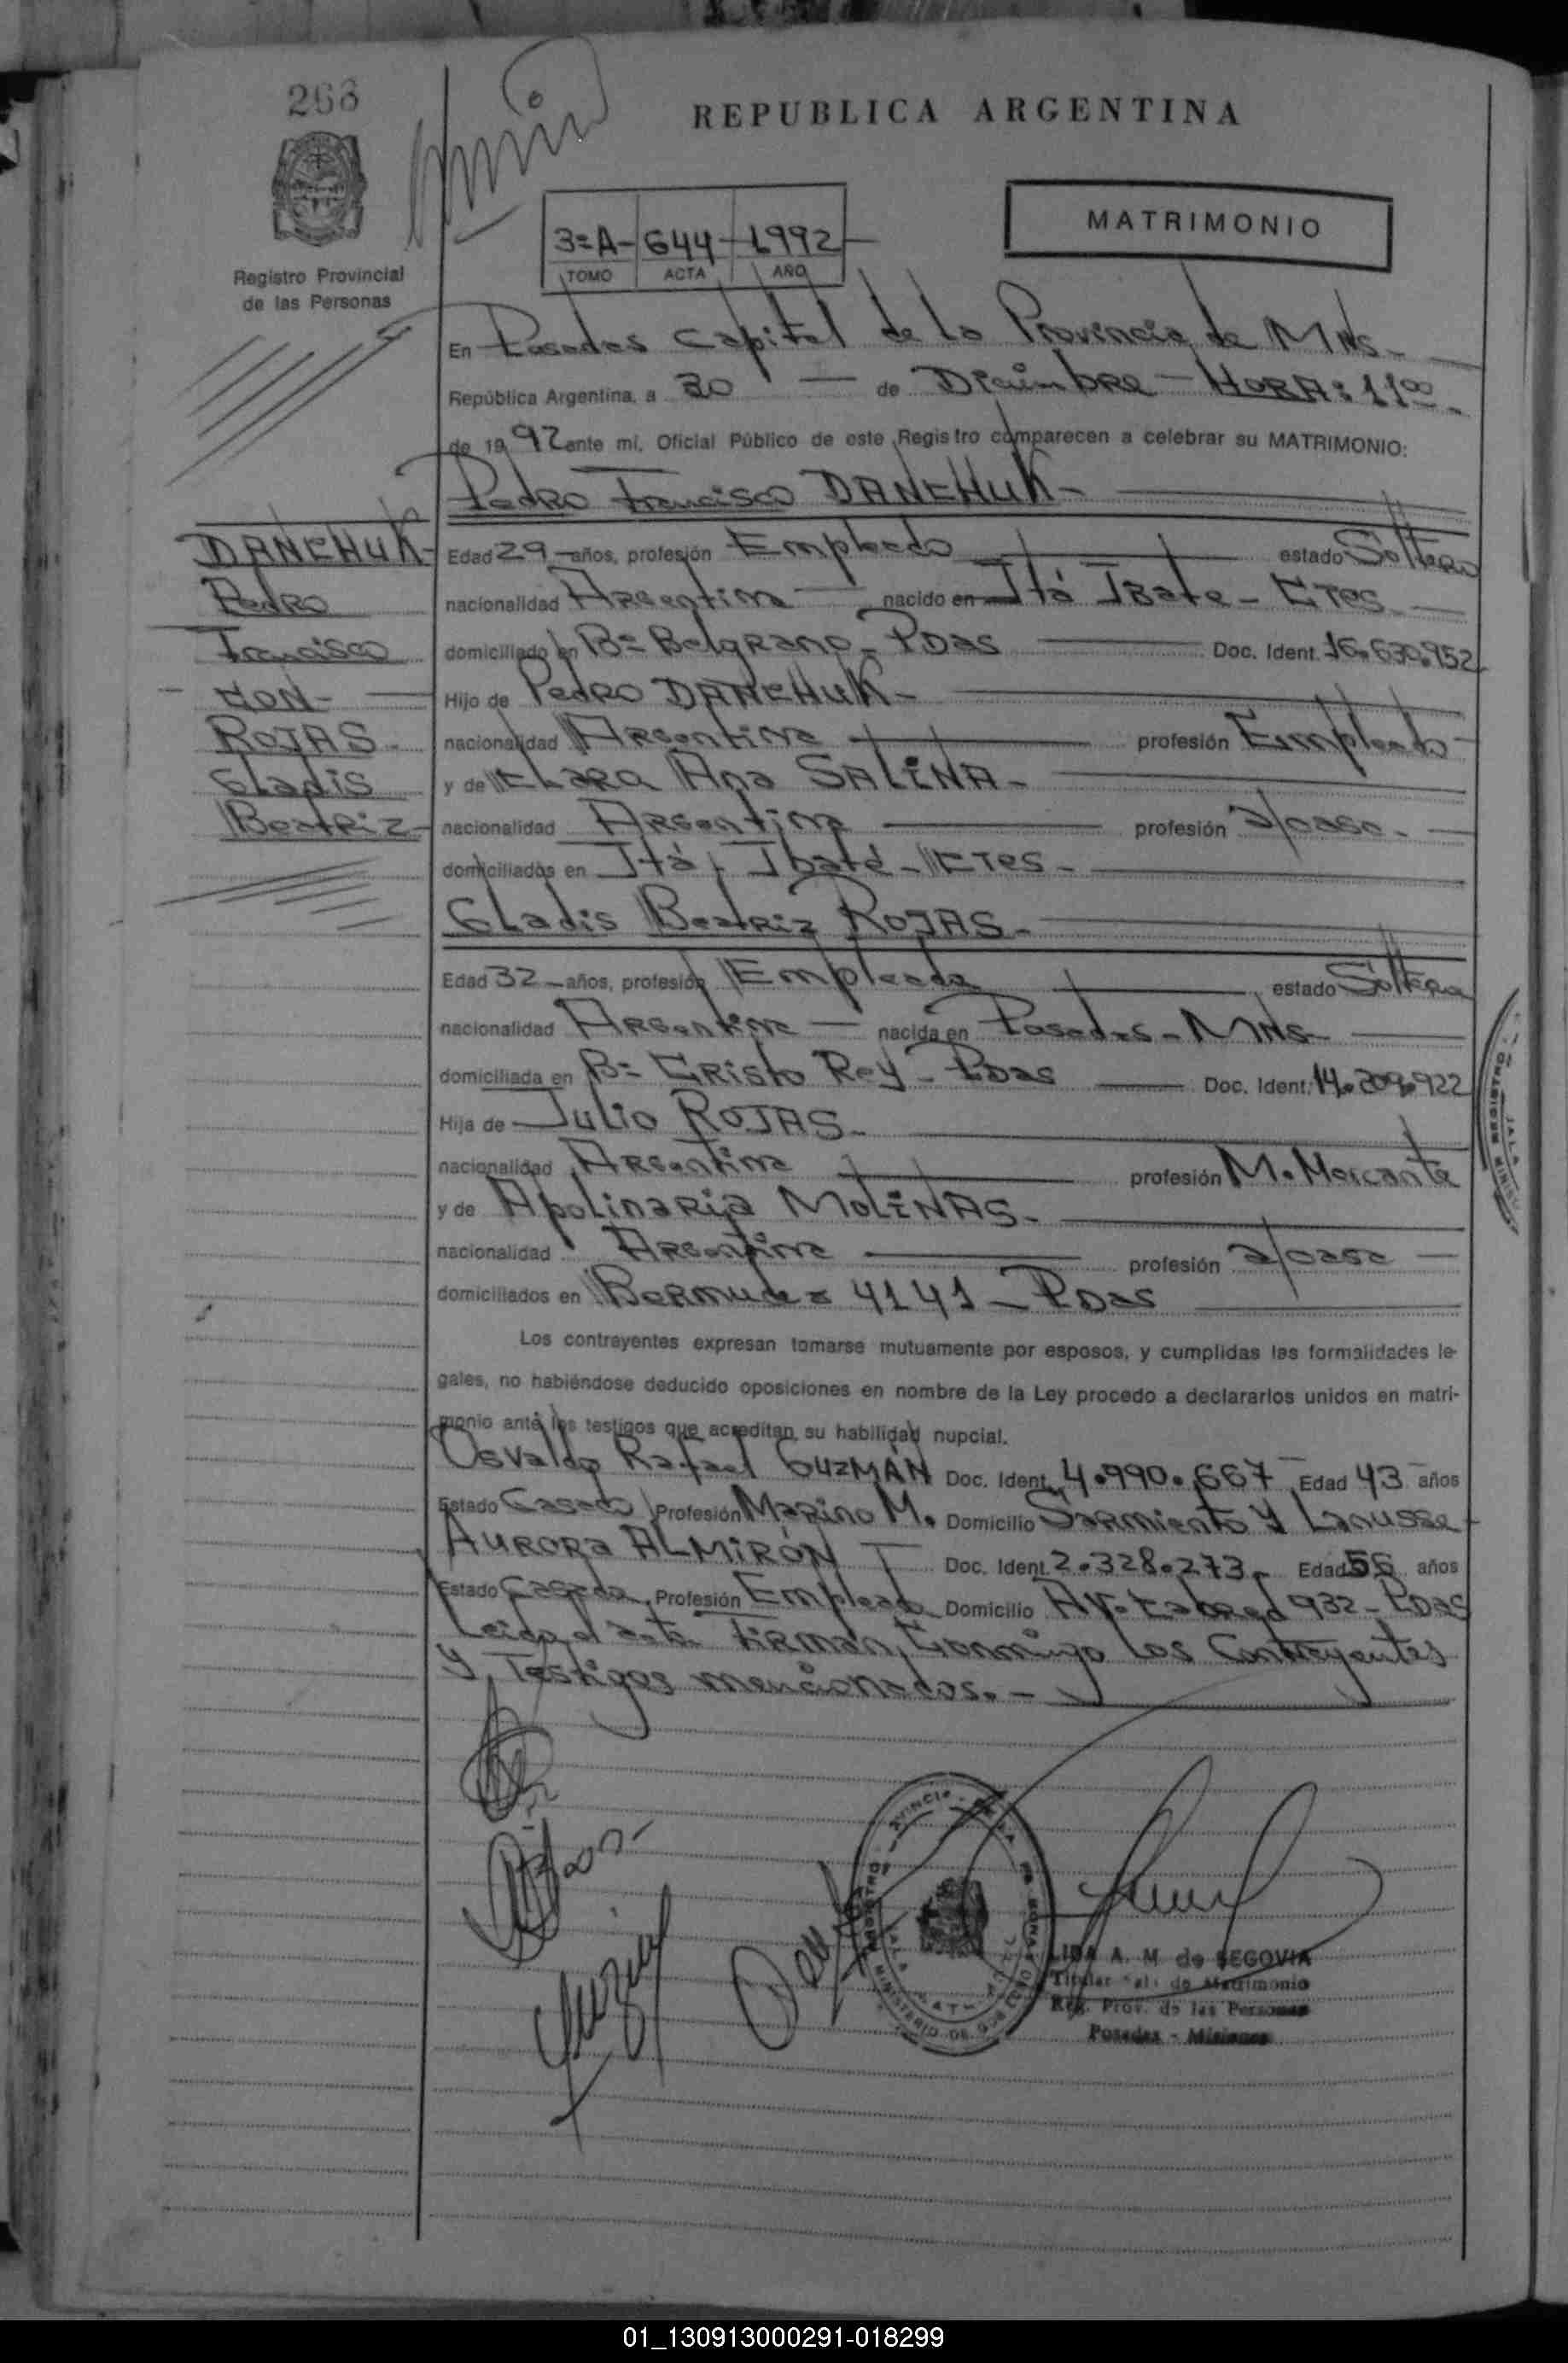 268
REPUBLICA ARGENTINA
Registro Provincial
de las Personas
3=A- 644 - 1992 -
TOMO ACTA AÑO
MATRIMONIO
En Posadas Capital de la Provincia de Mnes.
República Argentina, a 30 — de Diciembre - HORA: 11⁰⁰.
de 1992 ante mí, Oficial Público de este Registro comparecen a celebrar su MATRIMONIO:
Pedro Francisco DANCHUK-
DANCHUK-
Pedro
Francisco
CON-
ROJAS-
Gladis
Beatriz-
Edad 29 años, profesión Empleado estado Soltero
nacionalidad Argentina nacido en Itá Ibate - Ctes.
domiciliado en B= Belgrano - Pdas Doc. Ident. 16.630.952
Hijo de Pedro DANCHUK-
nacionalidad Argentina profesión Empleado
y de Clara Ana SALINA-
nacionalidad Argentina profesión a/casa.
domiciliados en Itá Ibaté - Ctes-
Gladis Beatriz ROJAS-
Edad 32 años, profesión Empleada estado Soltera
nacionalidad Argentina nacida en Posadas - Mnes
domiciliada en B= Cristo Rey - Pdas Doc. Ident. 14.209.922
Hija de Julio ROJAS-
nacionalidad Argentina profesión M. Mercante
y de Apolinaria MOLINAS-
nacionalidad Argentina profesión a/casa
domiciliados en Bermudez 4141 - Pdas
Los contrayentes expresan tomarse mutuamente por esposos, y cumplidas las formalidades le-
gales, no habiéndose deducido oposiciones en nombre de la Ley procedo a declararlos unidos en matri-
monio ante los testigos que acreditan su habilidad nupcial.
Osvaldo Rafael GUZMÁN Doc. Ident. 4.990.667 Edad 43 años
Estado Casado Profesión Marino M. Domicilio Sarmiento y Lanusse
Aurora ALMIRÓN Doc. Ident. 2.328.273- Edad 56 años
Estado Casada Profesión Empleada Domicilio Av. Cabred 932 - Pdas
Leida el acta Firman, Conmigo los Contrayentes
y Testigos mencionados.-
LIDA A. M. de SEGOVIA
Titular de Matrimonio
Reg. Prov. de las Personas
Posadas - Misiones
01_130913000291-018299